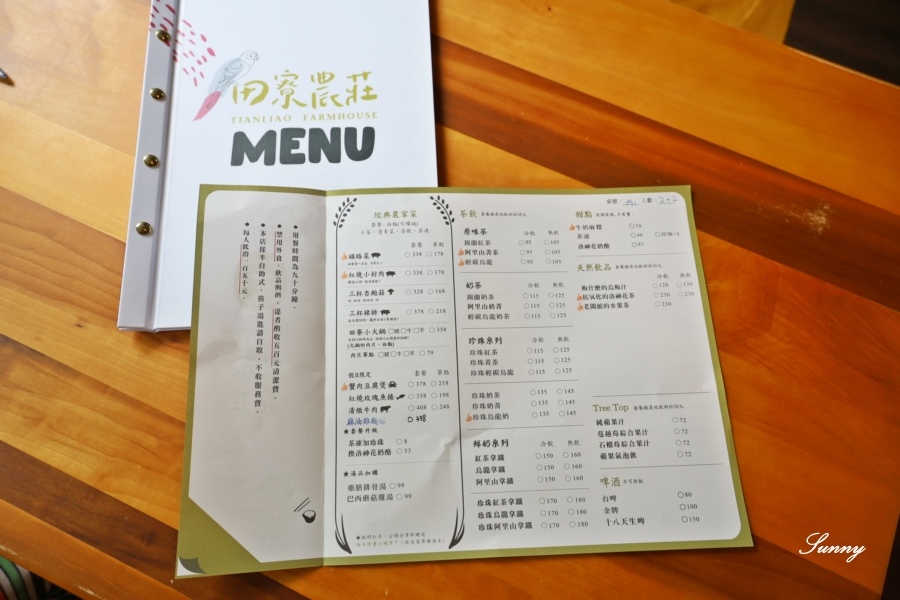 田寮農莊
TIANLIAO FARMHOUSE
MENU
● 用餐時間為九十分鐘。
● 禁用外食、飲品與酒，違者酌收五百元清潔費。
● 本店採半自助式，筷子湯匙請自取，不收服務費。
● 每人低消一百五十元。
經典農家菜
套餐 單點
鐵路菜 338 178
紅燒小封肉 338 178
三杯杏鮑菇 328 168
三杯豬排 378 218
田寮小火鍋 □豬□牛□羊 358
肉片單點 □豬□牛□羊 79
假日限定 套餐 單點
蟹肉豆腐煲 378 218
紅燒玫瑰魚捲 358 198
清燉牛肉 408 248
麻油雞 338
★套餐升級
茶凍加珍珠 8
換洛神花奶酪 53
★湯品加購
藥膳排骨湯 99
巴西蘑菇雞湯 99
茶飲
原味茶 冷飲 熱飲
錫蘭紅茶 95 105
阿里山菁茶 95 105
輕碳烏龍 95 105
奶茶 冷飲 熱飲
錫蘭奶茶 115 125
阿里山奶菁 115 125
輕碳烏龍奶茶 115 125
珍珠系列 冷飲 熱飲
珍珠紅茶 115 125
珍珠菁茶 115 125
珍珠輕碳烏龍 115 125
珍珠奶茶 135 145
珍珠奶菁 135 145
珍珠烏龍奶 135 145
鮮奶系列 冷飲 熱飲
紅茶拿鐵 150 160
烏龍拿鐵 150 160
阿里山拿鐵 150 160
珍珠紅茶拿鐵 170 180
珍珠烏龍拿鐵 170 180
珍珠阿里山拿鐵 170 180
桌號: A1 人數: 2+2
甜點
牛奶麻糬
茶凍
洛神花奶酪
天然飲品
冷飲 熱飲
梅什麼的烏梅汁 120 130
抗氧化的洛神花茶 230 230
老闆娘的水果茶 230
Tree Top
純蘋果汁 72
蔓越莓綜合果汁 72
石榴莓綜合果汁 72
蘋果氣泡飲 72
啤酒
台啤 80
金牌 100
十八天生啤 150
Sunny